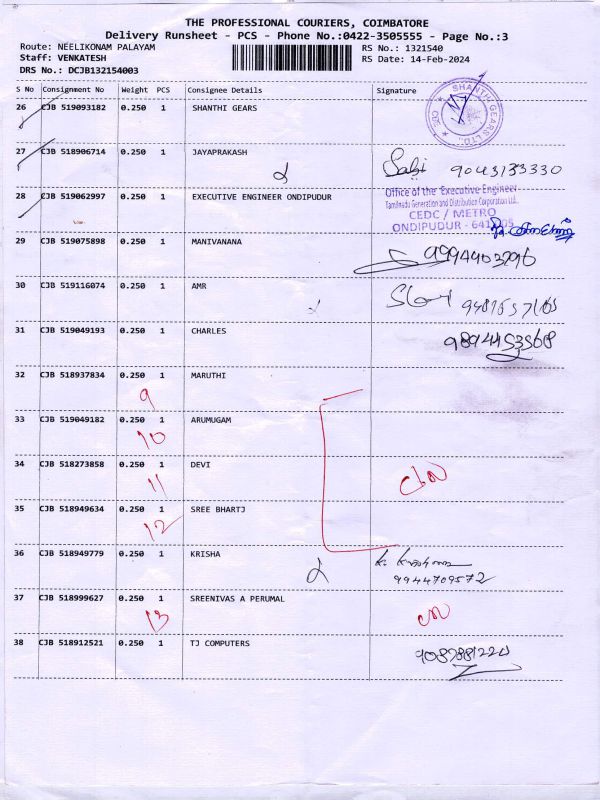 THE PROFESSIONAL COURIERS, COIMBATORE
Delivery Runsheet - PCS - Phone No.:0422-3505555 - Page No.:3
Route: NEELIKONAM PALAYAM RS No.: 1321540
Staff: VENKATESH RS Date: 14-Feb-2024
DRS No.: DCJB132154003
S No Consignment No Weight PCS Consignee Details Signature
26 CJB 519093182 0.250 1 SHANTHI GEARS
SHANTHI GEARS LTD.
27 CJB 518906714 0.250 1 JAYAPRAKASH
28 CJB 519062997 0.250 1 EXECUTIVE ENGINEER ONDIPUDUR
Office of the Executive Engineer
Tamilnadu Generation and Distribution Corporation Ltd.,
CEDC / METRO
ONDIPUDUR -
29 CJB 519075898 0.250 1 MANIVANANA
30 CJB 519116074 0.250 1 AMR
31 CJB 519049193 0.250 1 CHARLES
32 CJB 518937834 0.250 1 MARUTHI
9
33 CJB 519049182 0.250 1 ARUMUGAM
10
34 CJB 518273858 0.250 1 DEVI
11
35 CJB 518949634 0.250 1 SREE BHARTJ
12
36 CJB 518949779 0.250 1 KRISHA
9944709572
37 CJB 518999627 0.250 1 SREENIVAS A PERUMAL
13
38 CJB 518912521 0.250 1 TJ COMPUTERS